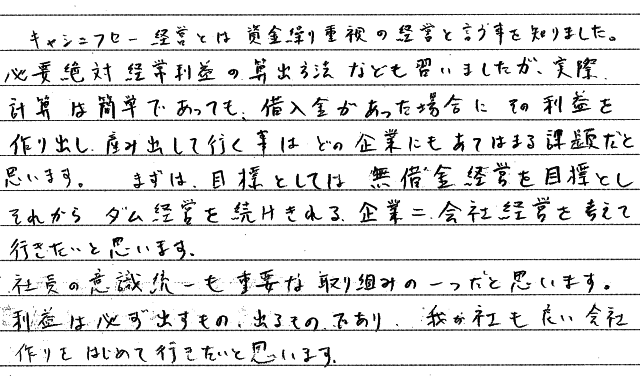 キャシニフロー経営とは資金繰り重視の経営と言う事を知りました。
必要絶対経常利益の算出方法なども習いましたが、実際
計算は簡単であっても、借入金があった場合にその利益を
作り出し、産み出して行く事はどの企業にもあてはまる課題だと
思います。 まずは、目標としては無借金経営を目標とし
それからダム経営を続けきれる、企業ニ、会社経営を考えて
行きたいと思います。
社員の意識統一も重要な取り組みの一つだと思います。
利益は必ず出すもの、出るものであり、我が社も良い会社
作りをはじめて行きたいと思います。